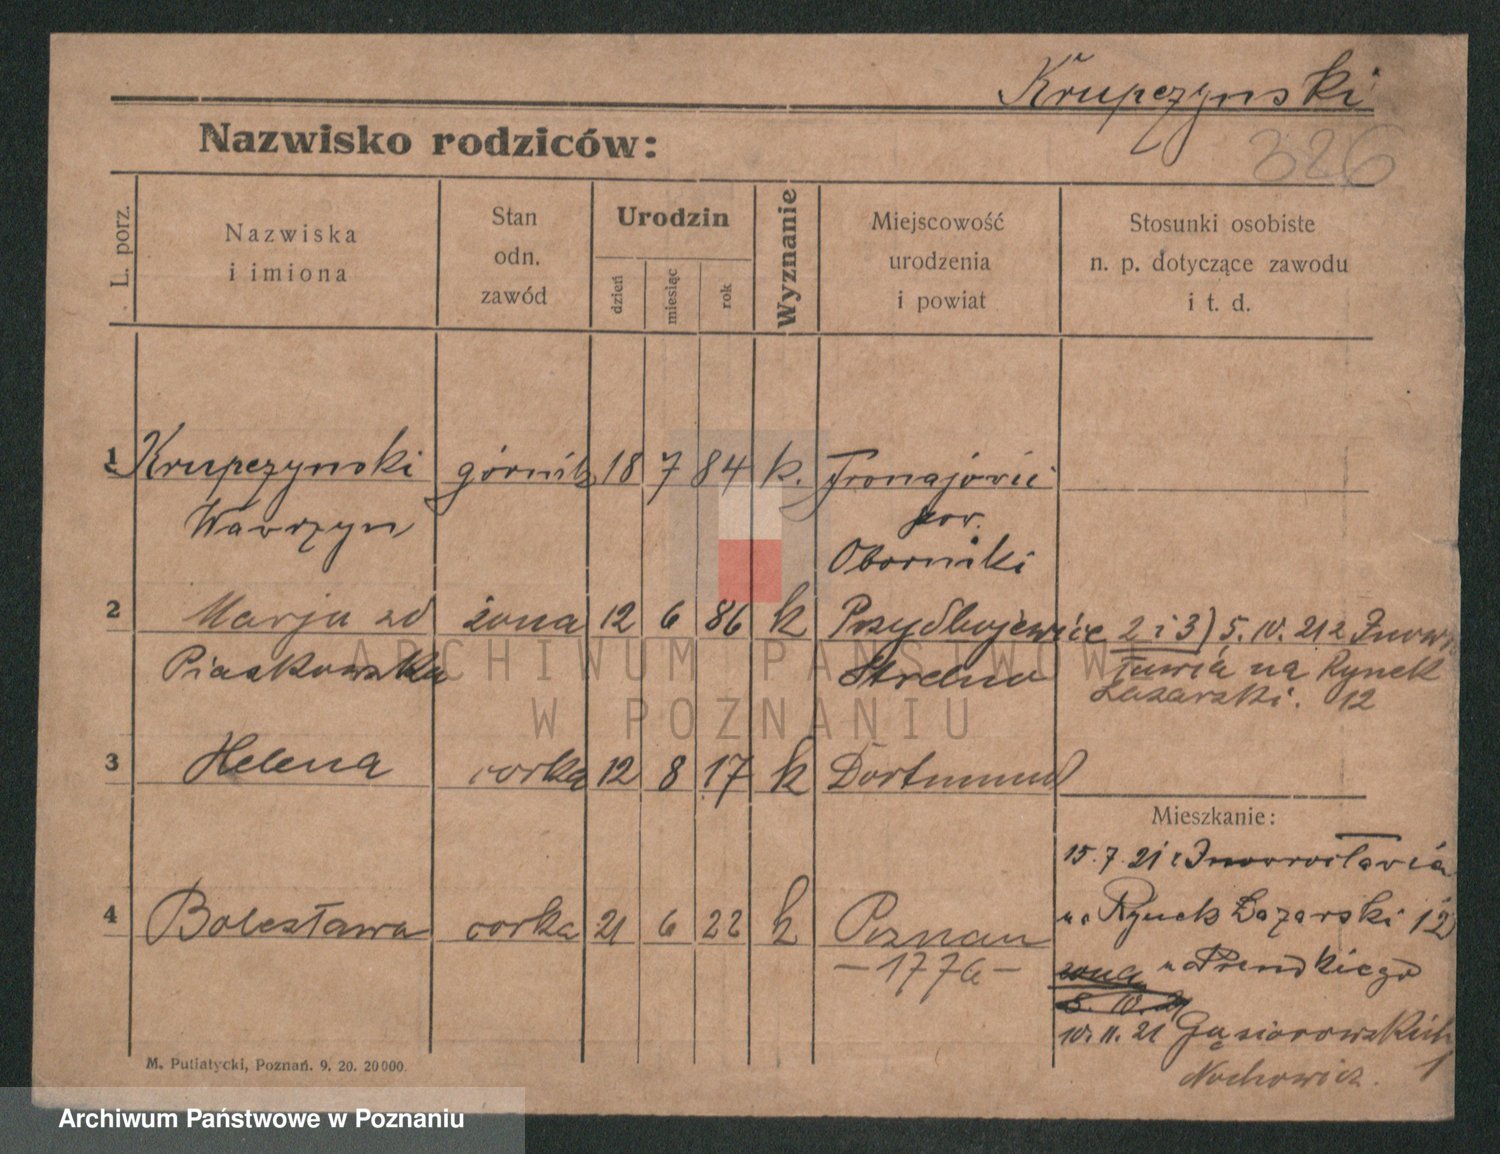 Krupczynski
326
Nazwisko rodziców:
L. porz.
Nazwiska
i imiona
Stan
odn.
zawód
Urodzin
dzień
miesiąc
rok
Wyznanie
Miejscowość
urodzenia
i powiat
Stosunki osobiste
n. p. dotyczące zawodu
i t. d.
1 Krupczynski górnik 18 7 84 k.
Wawrzyn pow.
Oborniki
2 Marja zd żona 12 6 86 k 2 i 3) 5. 10. 21 z
Piaskowska Strelno na Rynek
Lazarski. 12
3 Helena corka 12 8 17 k Dortmund
Mieszkanie:
15. 7. 21 z Inowrocławia
na Rynek Lazarski 12
4 Bolesława corka 21 6 22 k Poznan
-1776-
żona
5. 10. 21
10. 11. 21 Gąsiorowskich
1
M. Putiatycki, Poznań. 9. 20. 20000.
ARCHIWUM PAŃSTWOWE
W POZNANIU
Archiwum Państwowe w Poznaniu